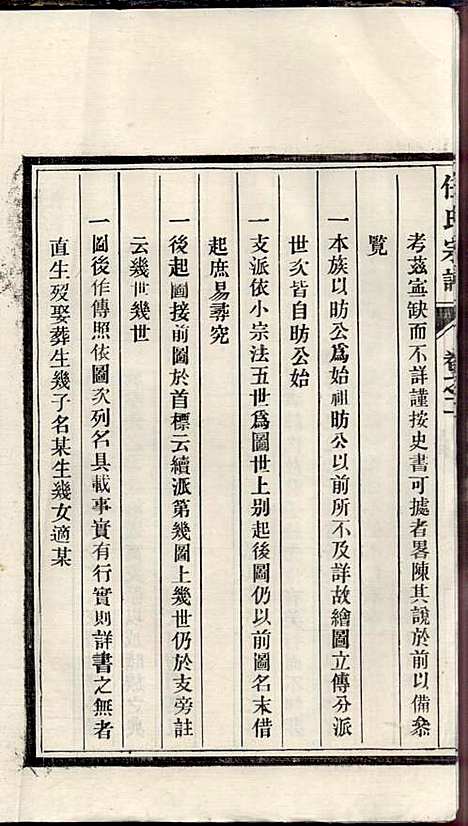 任氏宗譜
卷之二
考茲寧缺而不詳謹按史書可據者畧陳其說於前以備叅
覽
一本族以昉公爲始祖昉公以前所不及詳故繪圖立傳分派
世次皆自昉公始
一支派依小宗法五世爲圖世上别起後圖仍以前圖名末借
起庶易尋究
一後起圖接前圖於首標云續派第幾圖上幾世仍於支旁註
云幾世幾世
一圖後作傳照依圖次列名具載事實有行實則詳書之無者
直生殁娶葬生幾子名某生幾女適某